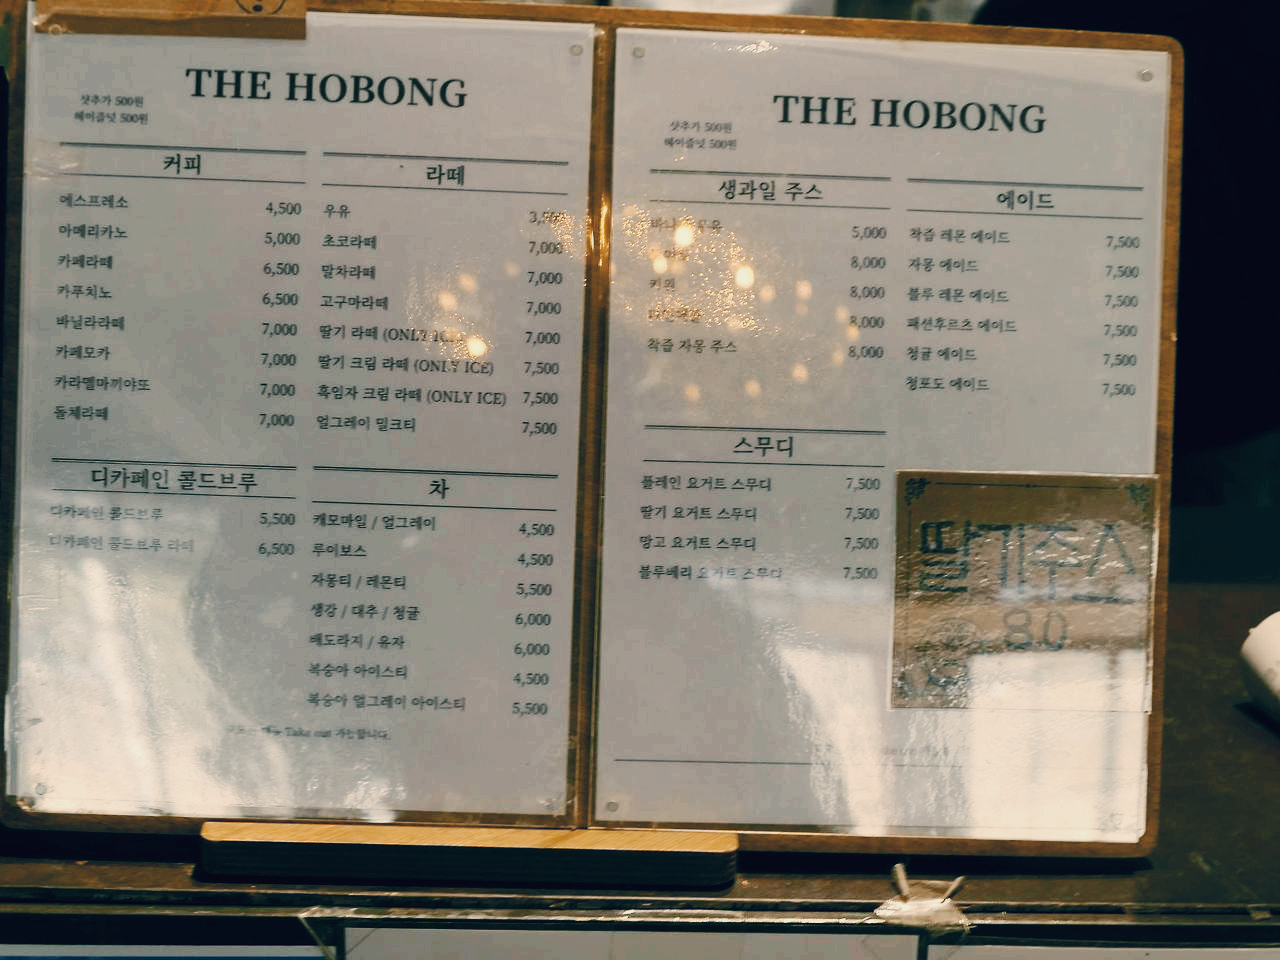 THE HOBONG
샷추가 500원
헤이즐넛 500원
커피
에스프레소 4,500
아메리카노 5,000
카페라떼 6,500
카푸치노 6,500
바닐라라떼 7,000
카페모카 7,000
카라멜마끼야또 7,000
돌체라떼 7,000
라떼
우유
초코라떼 7,000
말차라떼 7,000
고구마라떼 7,000
딸기 라떼 (ONLY ICE) 7,000
딸기 크림 라떼 (ONLY ICE) 7,500
흑임자 크림 라떼 (ONLY ICE) 7,500
얼그레이 밀크티 7,500
디카페인 콜드브루
디카페인 콜드브루 5,500
디카페인 콜드브루 라떼 6,500
차
캐모마일 / 얼그레이 4,500
루이보스 4,500
자몽티 / 레몬티 5,500
생강 / 대추 / 청귤 6,000
배도라지 / 유자 6,000
복숭아 아이스티 4,500
복숭아 얼그레이 아이스티 5,500
메뉴 Take out 가능합니다.
THE HOBONG
샷추가 500원
헤이즐넛 500원
생과일 주스
5,000
8,000
키위 8,000
8,000
착즙 자몽 주스 8,000
에이드
착즙 레몬 에이드 7,500
자몽 에이드 7,500
블루 레몬 에이드 7,500
패션후르츠 에이드 7,500
청귤 에이드 7,500
청포도 에이드 7,500
스무디
플레인 요거트 스무디 7,500
딸기 요거트 스무디 7,500
망고 요거트 스무디 7,500
블루베리 요거트 스무디 7,500
딸기주스
8.0